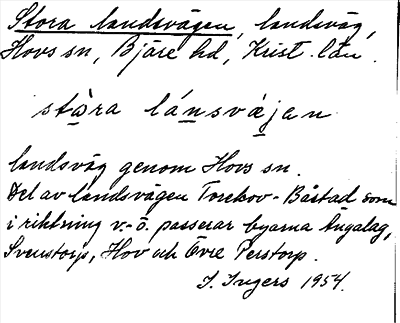 Stora landsvägen, landsväg,
Hovs sn, Bjäre hd, Krist. län.
stàra lánsvàjan
landsväg genom Hovs sn.
Del av landsvägen Torekov - Båstad som
i riktning v.-ö. passerar byarna Ängalag,
Svenstorp, Hov och Övre Perstorp.
I. Ingers 1954.